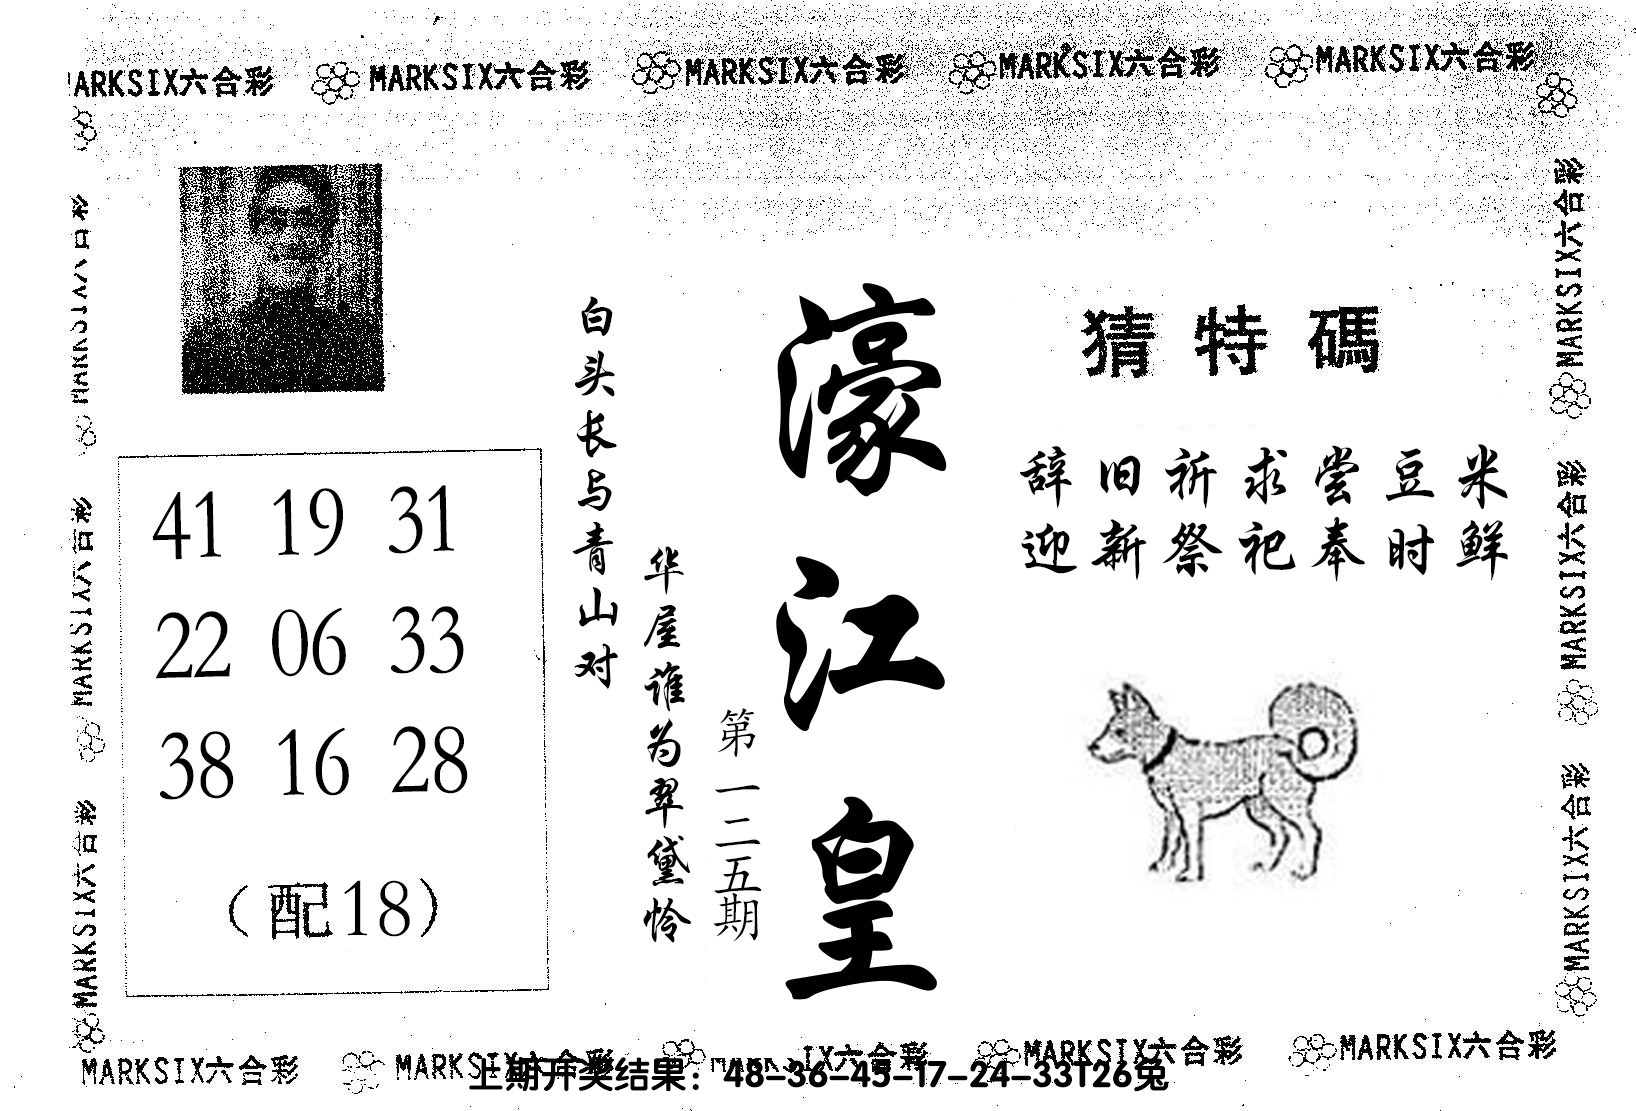 MARKSIX六合彩 MARKSIX六合彩 MARKSIX六合彩 MARKSIX六合彩 MARKSIX六合彩
猜特碼
辞旧祈求尝豆米
迎新祭祀奉时鲜
濠江皇
第一二五期
白头长与青山对
华屋谁为翠黛怜
41 19 31
22 06 33
38 16 28
（配18）
MARKSIX六合彩
MARKSIX六合彩
MARKSIX六合彩
MARKSIX六合彩
MARKSIX六合彩
MARKSIX六合彩
MARKSIX六合彩 MARKSIX六合彩 MARKSIX六合彩 MARKSIX六合彩 MARKSIX六合彩
上期开奖结果：48-36-45-17-24-33T26兔